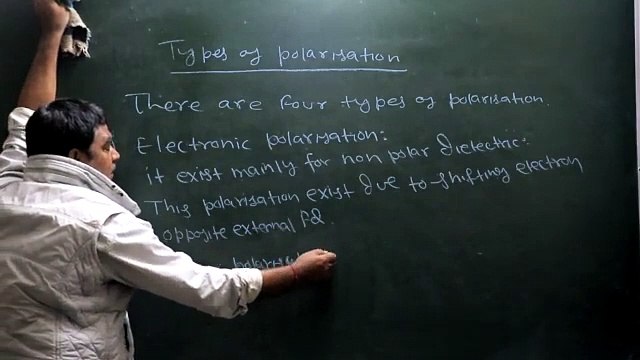 Types of polarisation
There are four types of polarisation.
Electronic polarisation:
it exist mainly for non polar dielectric:
This polarisation exist due to shifting electron
opposite external fd.